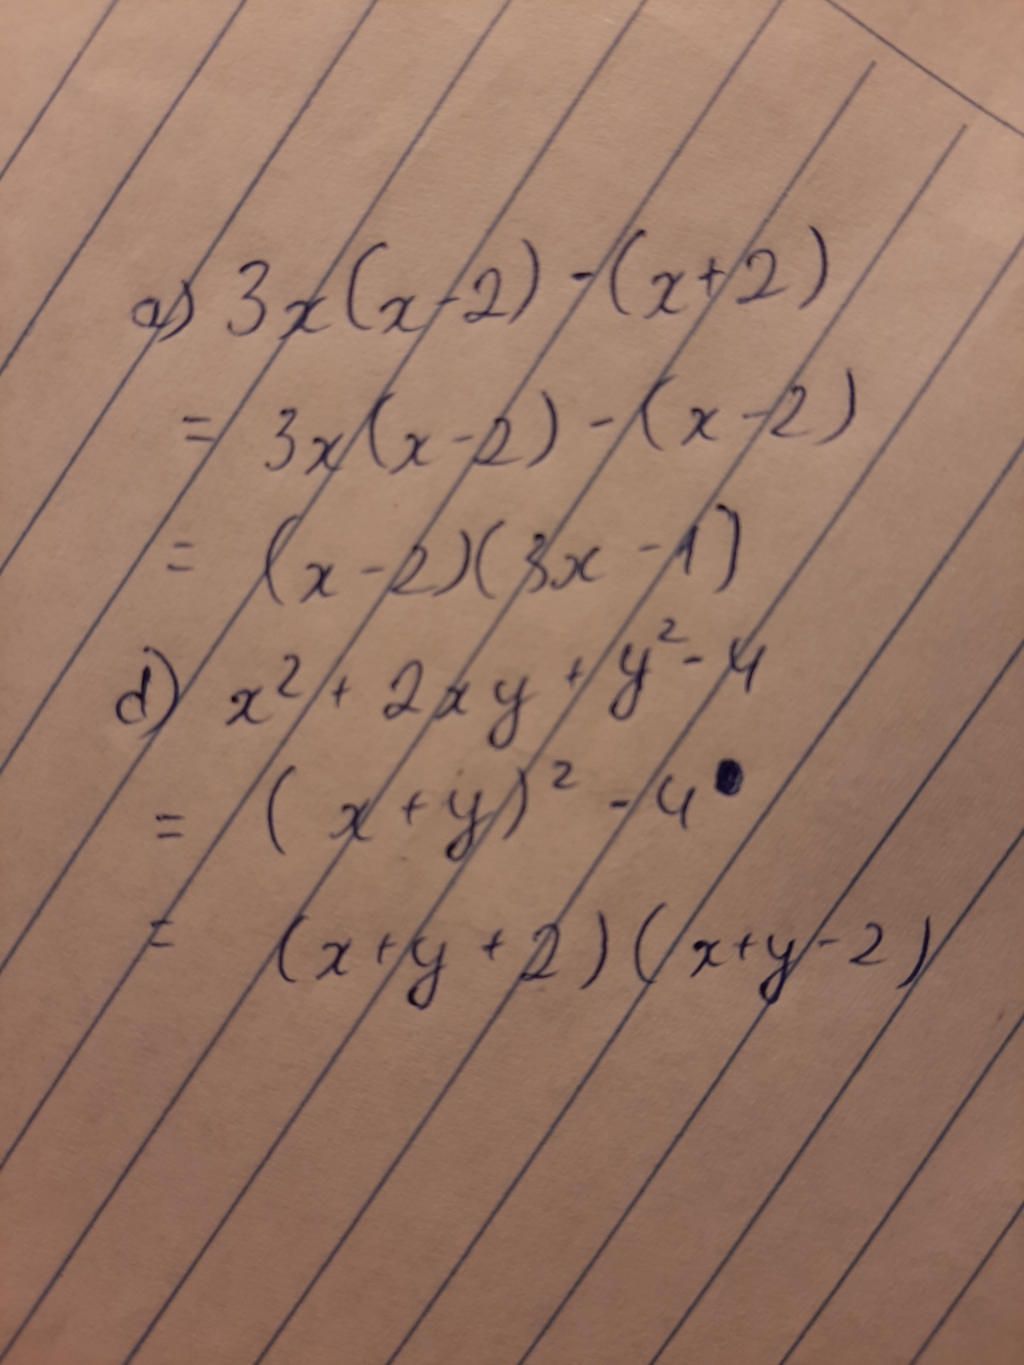 a) 3x(x-2) - (x+2)
= 3x(x-2) - (x-2)
= (x-2)(3x-1)
d) x² + 2xy + y² - 4
= (x+y)² - 4
= (x+y+2)(x+y-2)